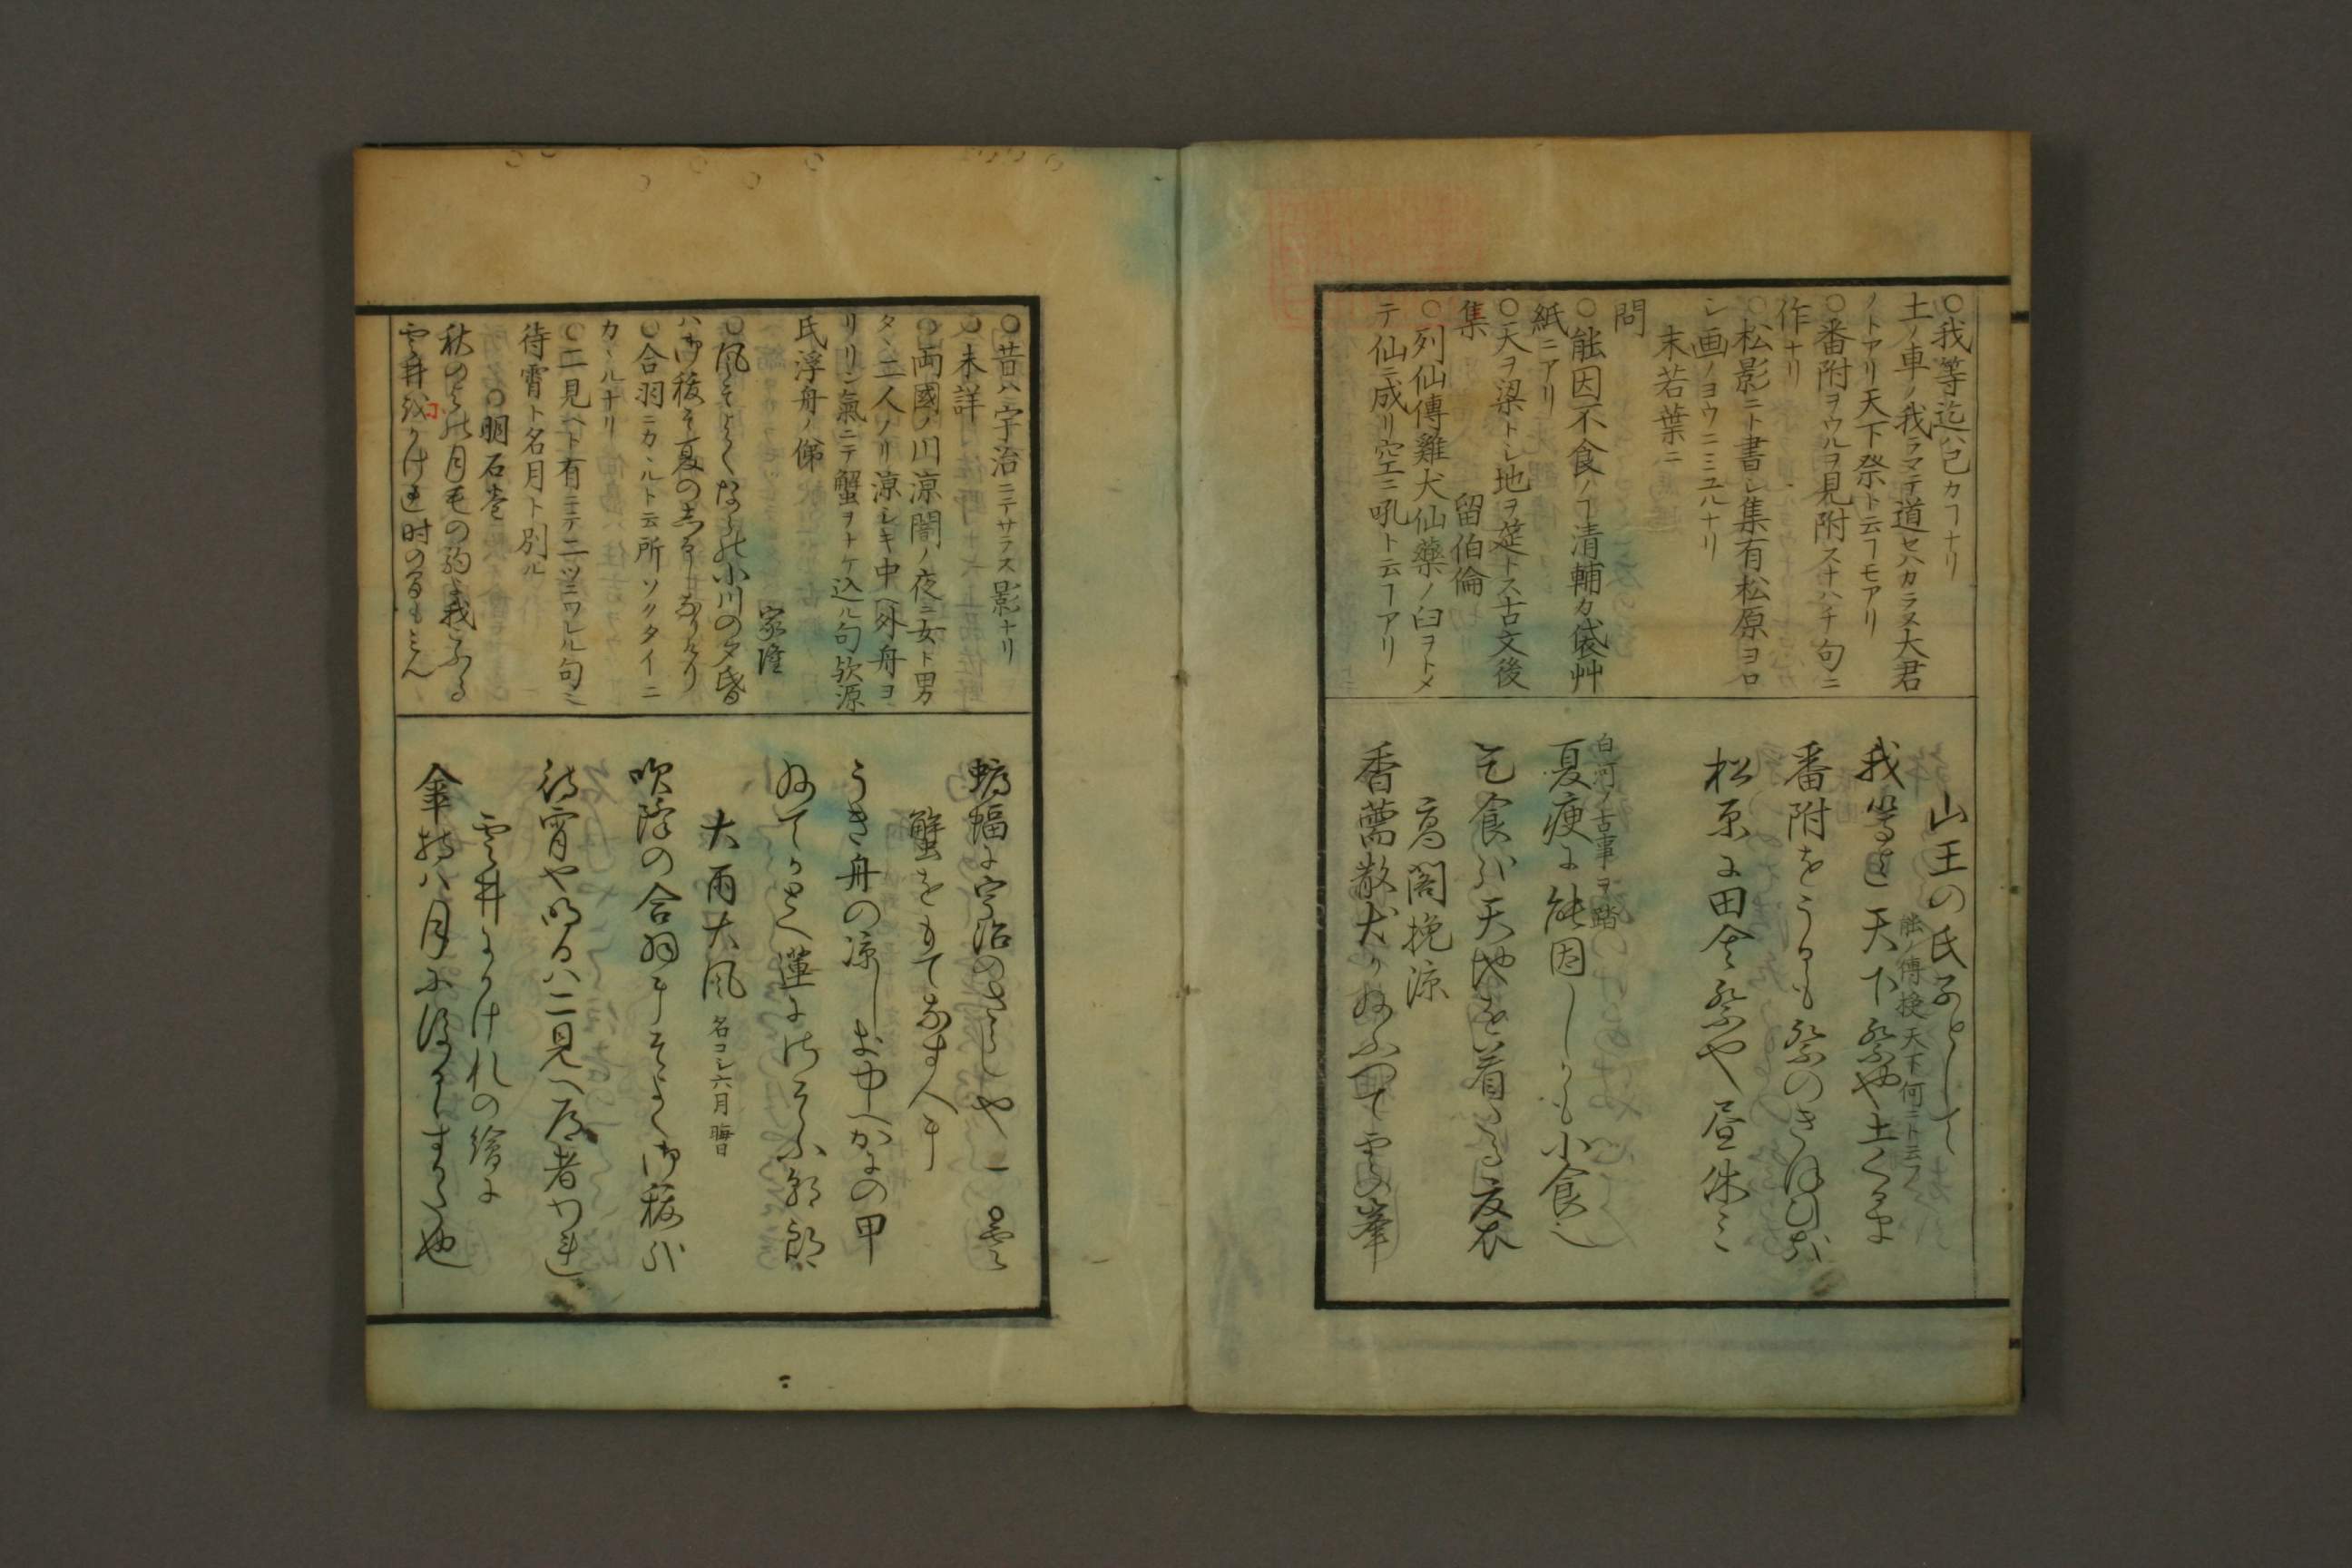 ○我等迄ハ己カヿナリ
土ノ車ノ我ラマテ道セハカラス大君
ノトアリ天下祭ト云ヿモアリ
○番附ヲウルヲ見附スナハチ句ニ
作ナリ
○松影ニト書シ集有松原ヨロ
シ画ノヨウニミユルナリ
末若葉ニ
問
○能因不食ノヿ清輔カ袋艸
紙ニアリ
○天ヲ梁トシ地ヲ莚トス古文後
集 留伯倫
○列仙傳雞犬仙藥ノ臼ヲトメ
テ仙ニ成リ空ニ吼ト云ヿアリ
山王の氏子として
能ノ傳授天下何ニト云フ
我等迄天下祭や土くるま
番附をうるも祭のきほひ哉
松原に田舎祭や昼休ミ
白河ノ古事ヲ踏
夏痩に能因しかも小食也
乞食哉天地を着たる夏衣
高閣挽涼
香薷散犬かねふつて雲の峯
○昔ハ宇治ニテサラス影ナリ
○未詳
○両國ノ川涼闇ノ夜ニ女ト男
タヽ二人ノリ涼シキ中ヘ外舟ヨ
リリン氣ニテ蟹ヲナケ込ル句欤源
氏浮舟ノ俤
家隆
○風そよくならの小川の夕昏
ハ御祓そ夏のしるしなりける
○合羽ニカヽルト云所ソクタイニ
カヽルナリ
○二見ヘト有ニテ二ツニワレル句ミ
待宵ト名月ト別ル
○明石巻
秋のよの月毛の駒よ我こふる
雲井をかけれ時の間もみん
蝙蝠に宇治のさらしや一くもり
蟹をもてなす人に
うき舟の涼しき中へかにの甲
大雨大風 名コシ六月晦日
吹降の合羽にそよく御祓哉
待宵や明日ハ二見へ道者われ
雲井にかけれの繪に